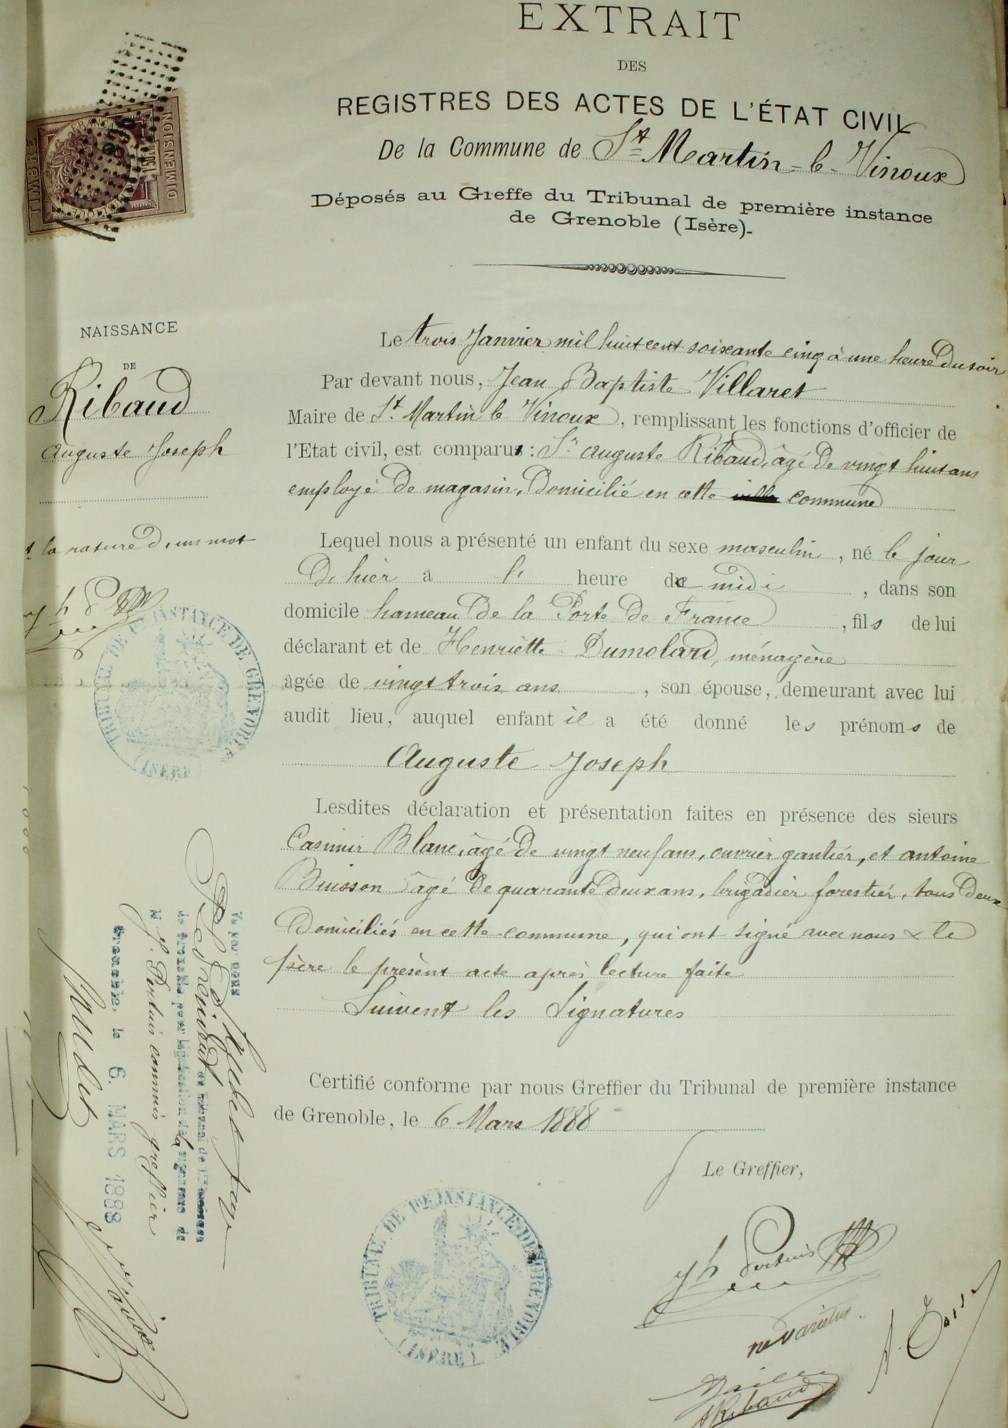 EXTRAIT
DES
REGISTRES DES ACTES DE L'ÉTAT CIVIL
De la Commune de St Martin-le-Vinoux
Déposés au Greffe du Tribunal de première instance
de Grenoble (Isère).
TIMBRE
DIMENSION
NAISSANCE
DE
Ribaud
Auguste Joseph
la rature d'un mot
TRIBUNAL DE 1re INSTANCE DE GRENOBLE
(ISÈRE)
Le trois Janvier mil huit cent soixante cinq à une heure du soir
Par devant nous, Jean Baptiste Villaret
Maire de St Martin le Vinoux, remplissant les fonctions d'officier de
l'Etat civil, est comparu : Sr Auguste Ribaud, âgé de vingt huit ans
employé de magasin, domicilié en cette ville commune
Lequel nous a présenté un enfant du sexe masculin, né le jour
d'hier à l' heure de midi, dans son
domicile hameau de la Porte de France, fils de lui
déclarant et de Henriette Dumolard, ménagère
âgée de vingt trois ans, son épouse, demeurant avec lui
audit lieu, auquel enfant il a été donné les prénoms de
Auguste Joseph
Lesdites déclaration et présentation faites en présence des sieurs
Casimir Blanc, âgé de vingt neuf ans, ouvrier gantier, et antoine
Buisson âgé de quarante deux ans, brigadier forestier, tous deux
domiciliés en cette commune, qui ont signé avec nous & le
père le présent acte après lecture faite
Suivent les Signatures
Certifié conforme par nous Greffier du Tribunal de première instance
de Grenoble, le 6 Mars 1888
Le Greffier,
Vu par nous
Président du tribunal de 1re instance
de Grenoble pour légalisation de la signature de
M. J. Pertuis commis greffier
Grenoble, le 6 MARS 1888
TRIBUNAL DE 1re INSTANCE DE GRENOBLE
(ISÈRE)
Jh Pertuis
ne varietur
A Ribaud